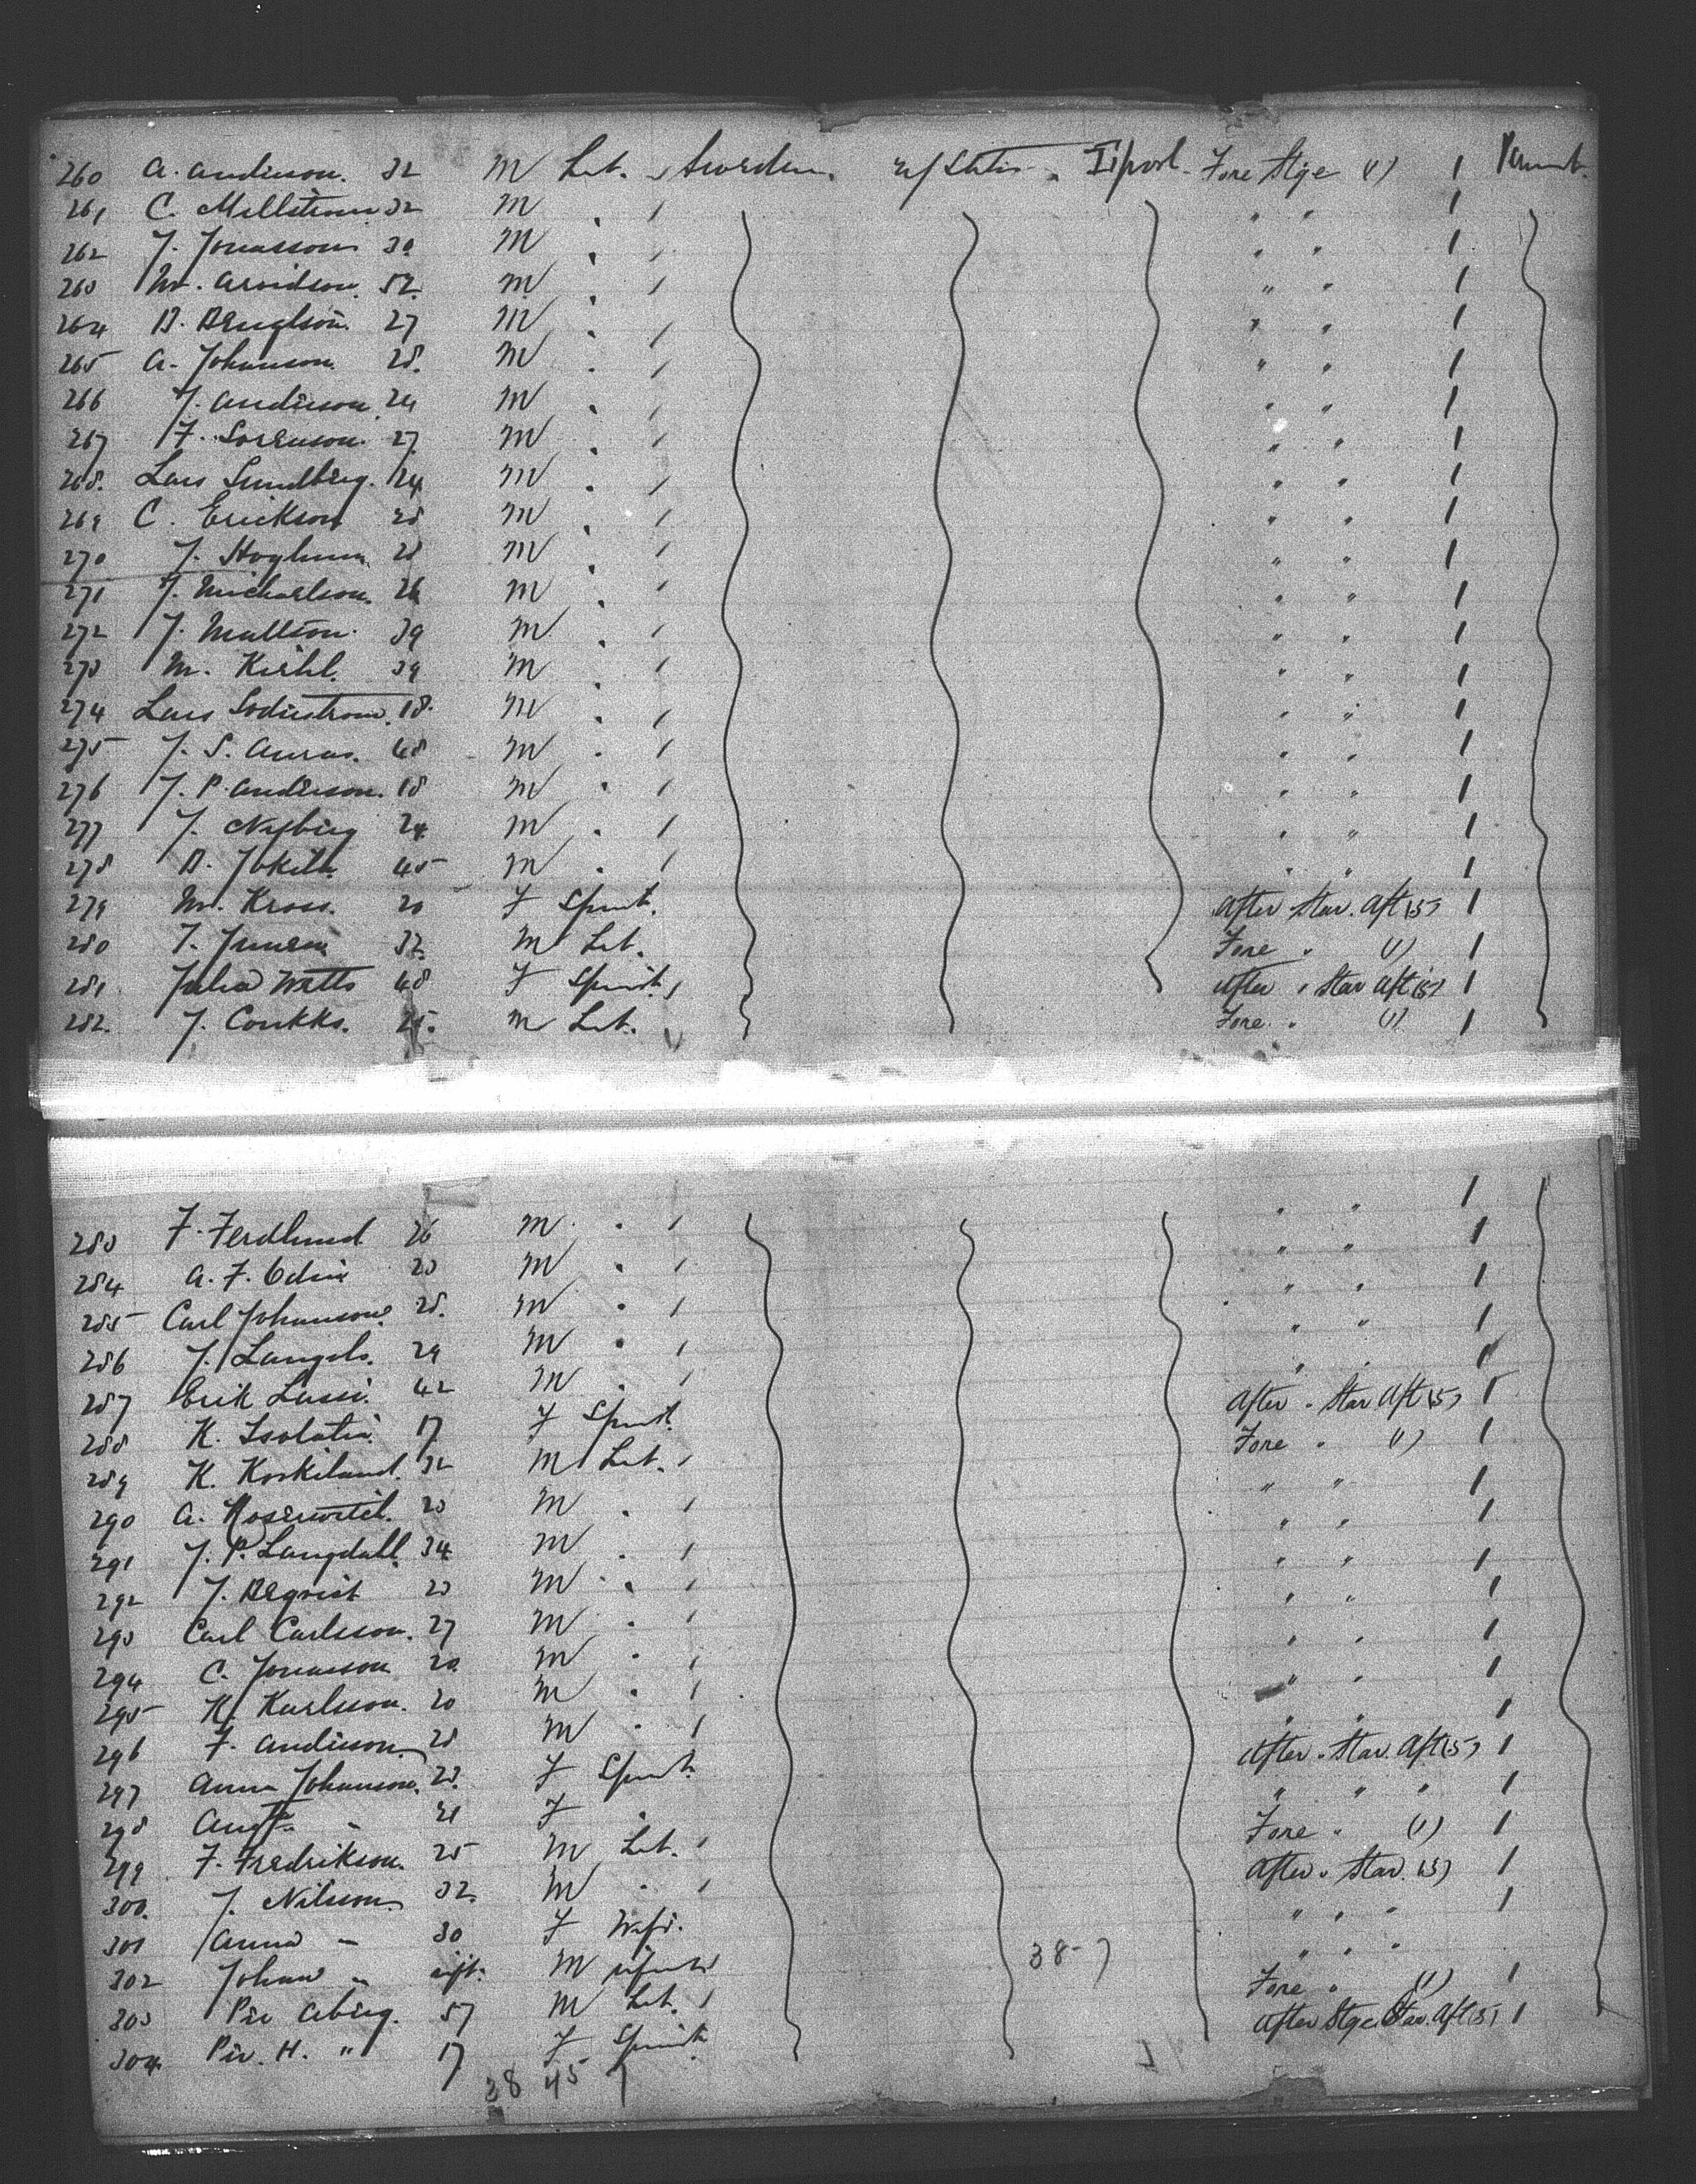 260 A. Anderson. 32 M Lab. Sweden. U/States L'pool Fore Stge (1) 1
261 C. Mellstrom 32 M " " " " 1
262 J. Jonasson 30 M " " " " 1
263 M. Arvidson. 52 M " " " " 1
264 B. Bengtson. 27 M " " " " 1
265 A. Johanson. 28. M " " " " 1
266 J. Anderson 24 M " " " " 1
267 F. Sorenson. 27 M " " " " 1
268. Lars Lundberg. 24 M " " " " 1
269 C. Erickson 28 M " " " " 1
270 J. Hoglund 28 M " " " " 1
271 J. Michaelson. 26 M " " " " 1
272 J. Mattson. 39 M " " " " 1
273 M. Kiehl. 39 M " " " " 1
274 Lars Soderstrom. 18. M " " " " 1
275 J. S. 48 M " " " " 1
276 J. P. Anderson. 18 M " " " " 1
277 J. Nyberg 24 M " " " " 1
278 B. 45 M " " " " 1
279 M. Kross. 20 F Spinst. After Star. Aft (5) 1
280 J. Jensen 32. M Lab. Fore " (1) 1
281 Julia Watts 48 F Spinst. After " Star Aft (5) 1
282. J. 25. M Lab. Fore " (1) 1
283 F. Ferdlund 26 M " " " " 1
284 A. F. 23 M " " " " 1
285 Carl Johanson. 28. M " " " " 1
286 J. Langels. 29 M " " " " 1
287 Erik Lassi. 42 M " " " " 1
288 K. Isolatia. 17 F Spinst. After " Star Aft (5) 1
289 K. Koskiland. 32 M Lab. " Fore " (1) 1
290 A. 23 M " " " " 1
291 J. P. Langdahl. 34 M " " " " 1
292 J. Beqvist 23 M " " " " 1
293 Carl Carlsson. 27 M " " " " 1
294 C. Jonasson 20 M " " " " 1
295 K. Karlsson. 20 M " " " " 1
296 F. Anderson. 28 M " " " " 1
297 Anna Johanson. 23. F Spinst. After " Star. Aft (5) 1
298 Augta. " 21 F " " " " 1
299 F. Fredrikson. 25 M Lab. " Fore " (1) 1
300. J. Nilsson 32. M " " After " Star. (5) 1
301 Anna " 30 F Wife. " " " 1
302 Johan " inft. M infant " " "
303 Per Aberg. 57 M Lab. " Fore " (1) 1
304. Per. H. " 17 F Spinst. After Stge Star. Aft (5) 1
38 7
38 45 7